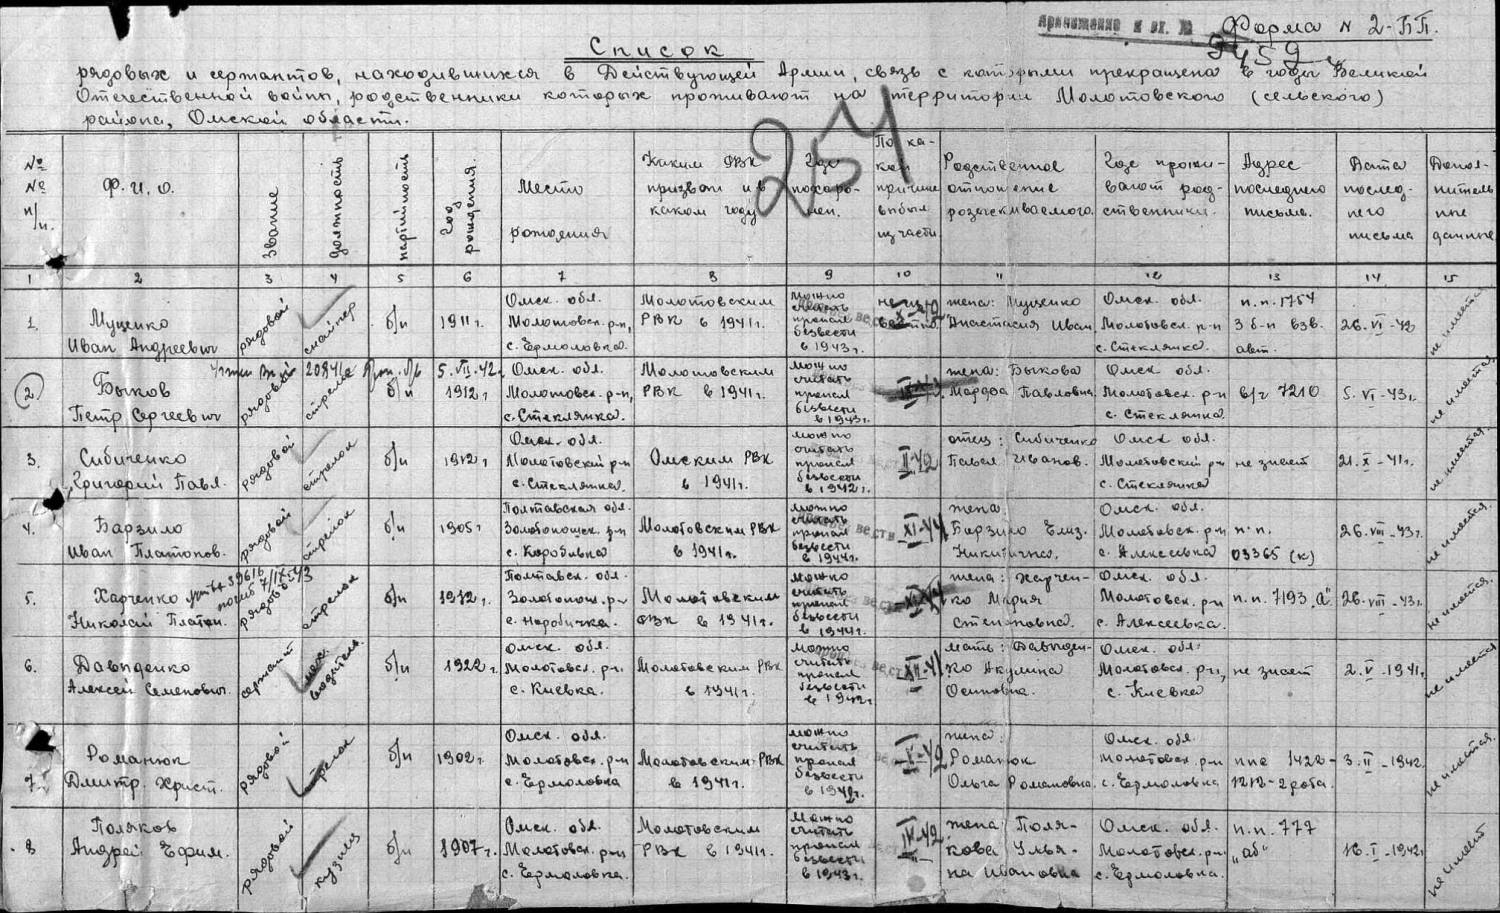 Приложение к вх. №
Форма N 2-БП.
9459
Список
рядовых и сержантов, находившихся в Действующей Армии, связь с которыми прекращена в годы Великой
Отечественной войны, родственники которых проживают на территории Молотовского (сельского)
района, Омской области.
257
№ № п/п.
Ф. И. О.
Звание
должность
партийность
Год рождения
Место рождения
Каким РВК призван и в каком году
Где похоро- нен.
По ка- кой причине выбыл из части
Родственное отношение разыскиваемого
Где прожи- вают род- ственники.
Адрес последнего письма.
Дата послед- него письма
Допол- нитель ные данные
1 2 3 4 5 6 7 8 9 10 11 12 13 14 15
1. Муценко Иван Андреевич
рядовой
снайпер
б/п
1911 г.
Омск. обл. Молотовск. р-н, с. Ермоловка.
Молотовским РВК в 1941 г.
можно считать пропал безвести в 1943 г.
жена: Муценко Анастасия Иван.
Омск. обл. Молотовск. р-н с. Стеклянка.
п.п. 1754 3 б-н взв. авт.
26. VI - 43
не имеется
2. Быков Петр Сергеевич
рядовой
б/п
5. VII. 42 г.
1912 г.
Омск. обл. Молотовск. р-н, с. Стеклянка.
Молотовским РВК в 1941 г.
можно считать пропал безвести в 1943 г.
жена: Быкова Марфа Павловна
Омск. обл. Молотовск. р-н с. Стеклянка
в/ч 7210
5. VI - 43 г.
не имеется
3. Сибиченко Григорий Павл.
рядовой
стрелок
б/п
1912 г.
Омск. обл. Молотовский р-н с. Стеклянка.
Омским РВК в 1941 г.
можно считать пропал безвести в 1942 г.
II-42
отец: Сибиченко Павел Иванов.
Омск. обл. Молотовский р-н с. Стеклянка
не знает
21. X - 41 г.
не имеется.
4. Барзило Иван Платонов.
рядовой
стрелок
б/п
1905 г
Полтавская обл. Золотоношск. р-н с. Коробивка
Молотовским РВК в 1941 г.
можно считать пропал безвести в 1944 г.
XI-44
жена: Барзило Елиз. Никитична.
Омск. обл. Молотовск. р-н с. Алексеевка
п.п. 03365 (к)
26. VIII - 43 г.
не имеется.
5. Харченко Николай Платон.
рядовой
стрелок
б/п
1912 г.
Полтавск. обл. Золотонош. р-н
Молотовским РВК в 1941 г.
можно считать пропал безвести в 1944 г.
жена: Харчен- ко Мария Степановна.
Омск. обл. Молотовск. р-н с. Алексеевка.
п.п. 7193 "а"
26. VIII - 43 г.
не имеется.
6. Давыденко Алексей Семенович.
сержант
мех. водитель.
б/п
1922 г.
Омск. обл. Молотовск. р-н. с. Киевка.
Молотовским РВК в 1941 г.
можно считать пропал безвести в 1942 г.
XII-41
мать: Давыден- ко Акулина Осиповна.
Омск. обл. Молотовск. р-н, с. Киевка
не знает
2. V - 1941 г.
не имеется
7. Романюк Дмитр. Христ.
рядовой
стрелок
б/п
1902 г.
Омск. обл. Молотовск. р-н с. Ермоловка
Молотовским РВК в 1941 г.
можно считать пропал безвести в 1942 г.
V-42
жена: Романюк Ольга Романовна.
Омск. обл. Молотовск. р-н с. Ермоловка
ппс 1422 - 1212 - 2 рота.
3. II - 1942 г.
не имеется.
8 Поляков Андрей Ефим.
рядовой
кузнец
б/п
1907 г.
Омск. обл. Молотовск. р-н с. Ермоловка.
Молотовским РВК в 1941 г.
можно считать пропал безвести в 1943 г.
IV-42
жена Поля- кова Улья- на Ивановна
Омск. обл. Молотовск. р-н с. Ермоловка.
п.п. 777 "аб"
16. I - 1942 г.
не имеет